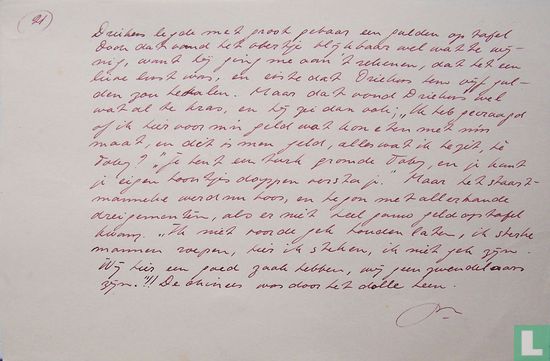 (21)
Driekus legde met groot gebaar een gulden op tafel
Doch dat vond het obertje blijkbaar wel wat te wei-
nig, want hij ging me aan 't rekenen, dat het een
lieve lust was, en eiste dat Driekus hem vijf gul-
den zou betalen. Maar dat vond Driekus wel
wat al te kras, en hij zei dan ook; "Ik heb gevraagd
of ik hier voor m'n geld wat kon eten met m'n
maat, en dit is m'n geld, alles wat ik bezit, hè
Toby?" "Je bent een Toby, en je kunt
je eigen boontjes doppen versta je." Maar het staart-
manneke werd nu boos, en begon met allerhande
dreigementen, als er niet heel gauw geld op tafel
kwam. "Ik niet voor de gek houden laten, ik sterke
mannen roepen, hier ik steken, ik niet gek zijn.
Wij hier een goed zaak hebben, wij geen zwendelaars
zijn."!! De chinees was door het dolle heen.
L
catawiki